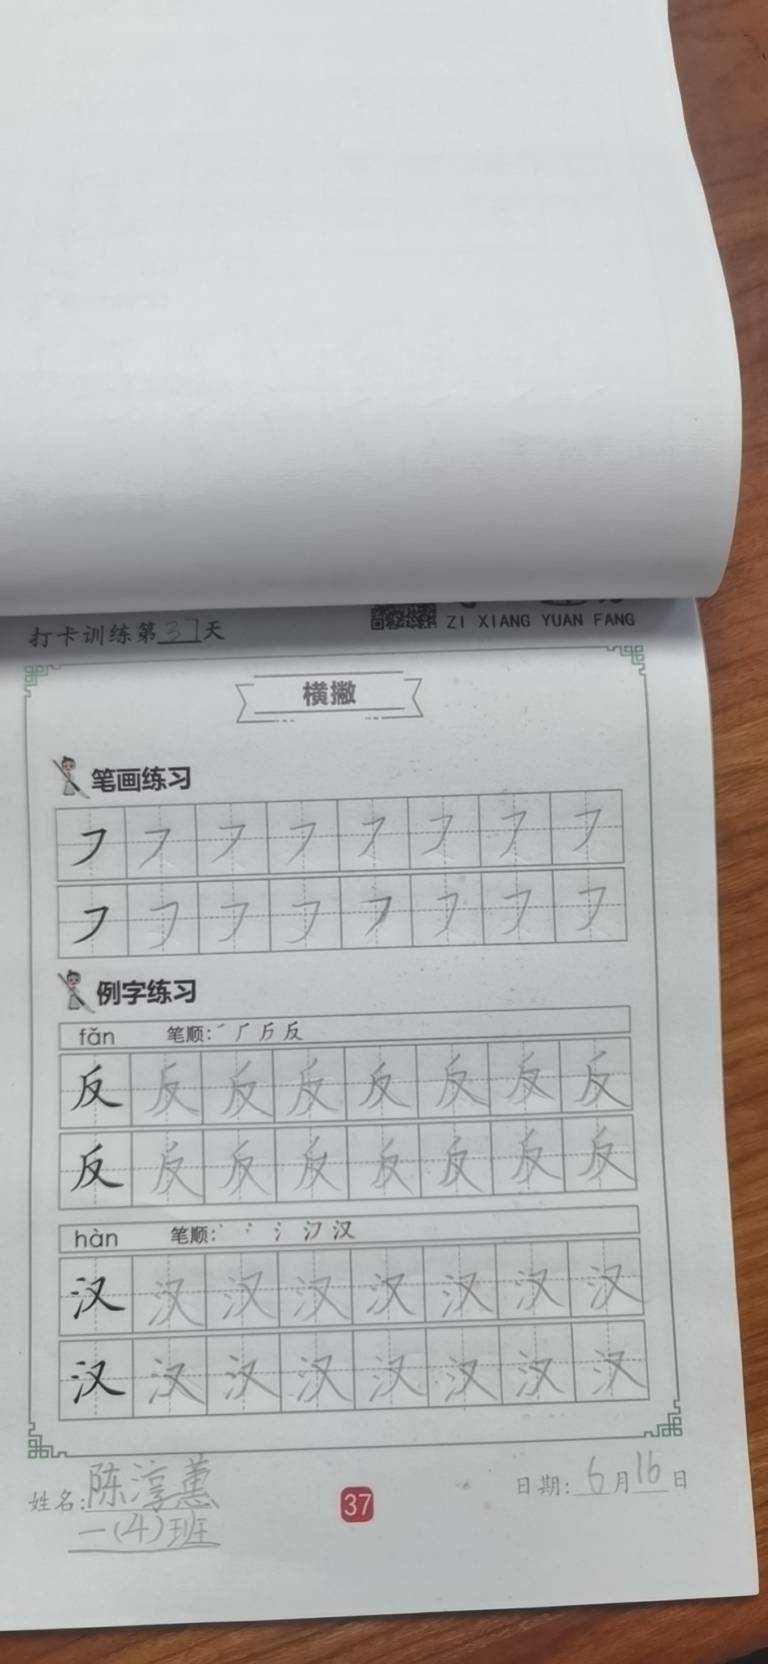 打卡训练第37天
ZI XIANG YUAN FANG
横撇
笔画练习
㇇ ㇇ ㇇ ㇇ ㇇ ㇇ ㇇ ㇇
㇇ ㇇ ㇇ ㇇ ㇇ ㇇ ㇇ ㇇
例字练习
fǎn 笔顺: 反
反 反 反 反 反 反 反 反
反 反 反 反 反 反 反 反
hàn 笔顺: 汉
汉 汉 汉 汉 汉 汉 汉 汉
汉 汉 汉 汉 汉 汉 汉 汉
姓名:陈淳蕙 37 日期:6月16日
一(4)班